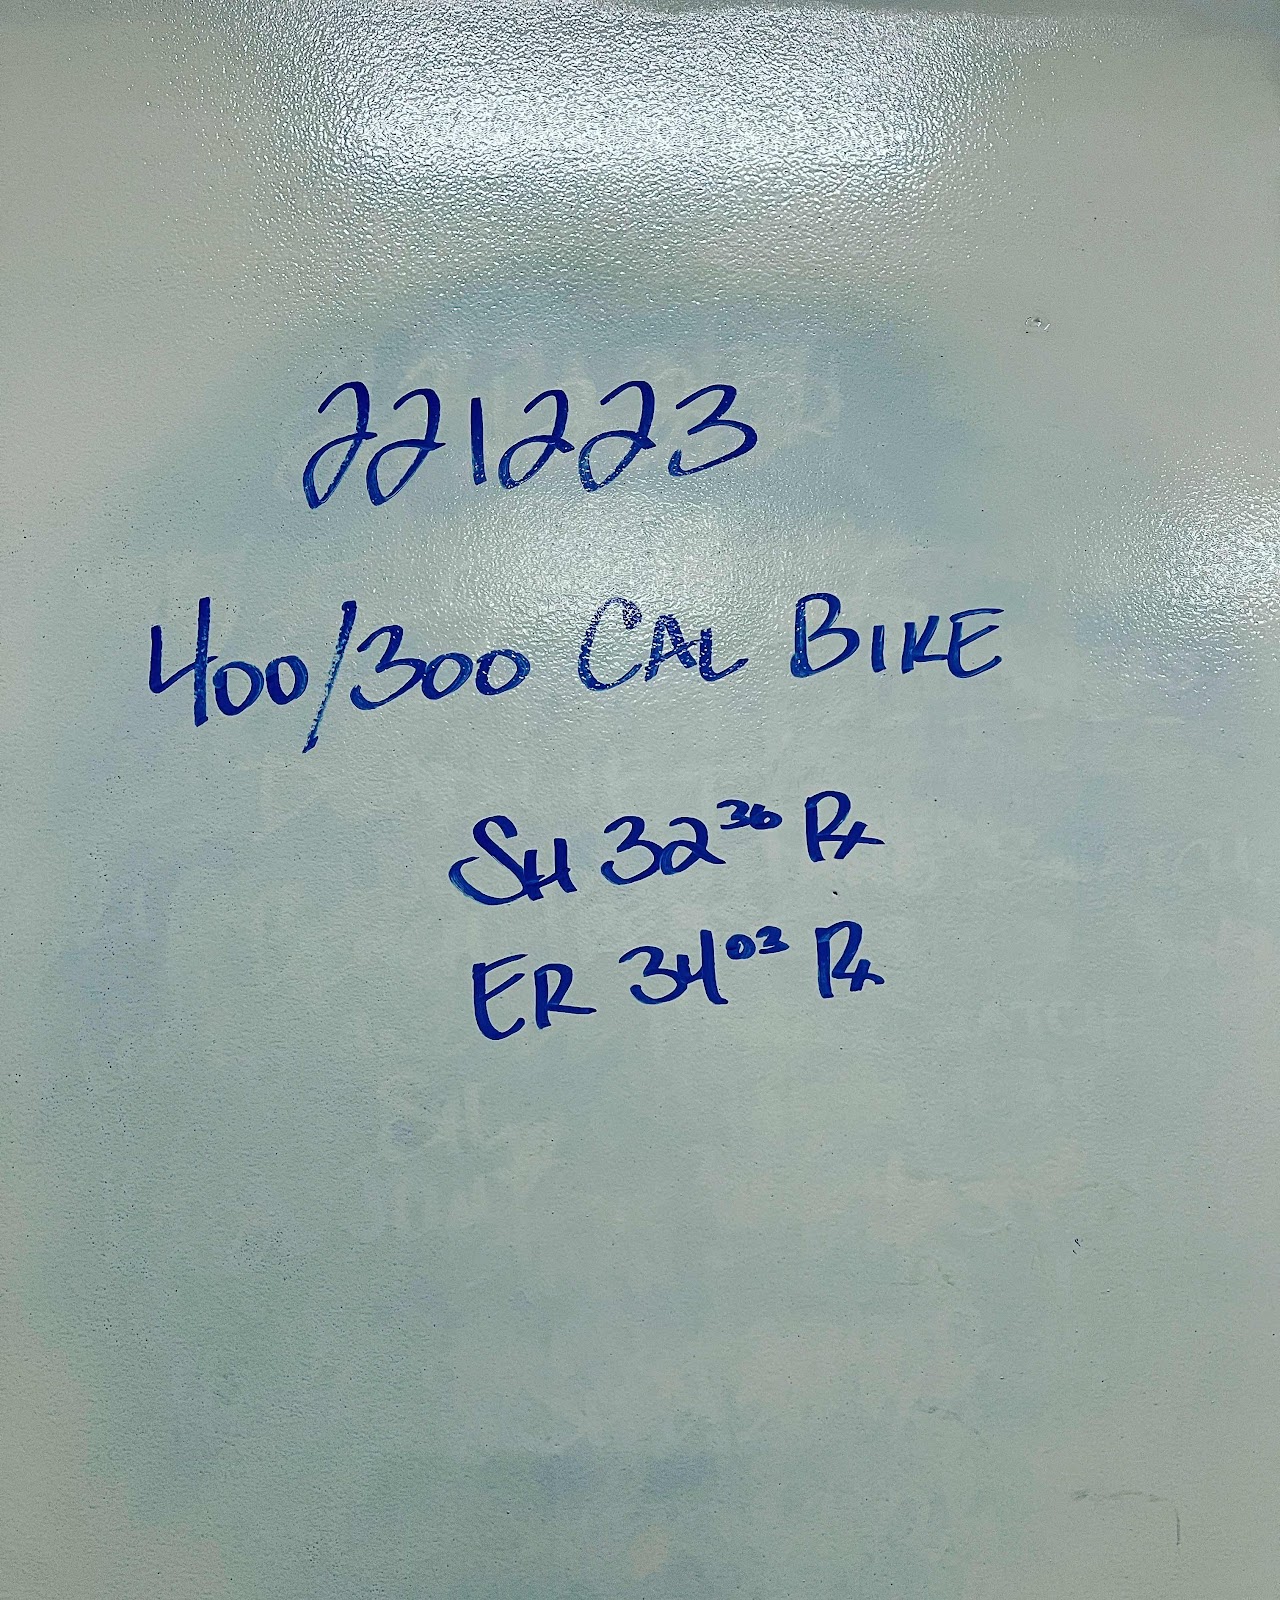 221223
400/300 CAL BIKE
SH 32 36 Rx
ER 34 03 Rx